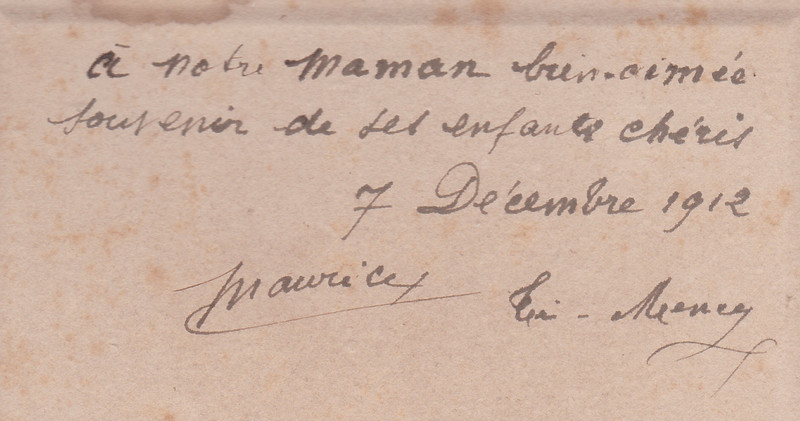 à notre Maman bien-aimée
souvenir de ses enfants chéris
7 Décembre 1912
Maurice Ti-